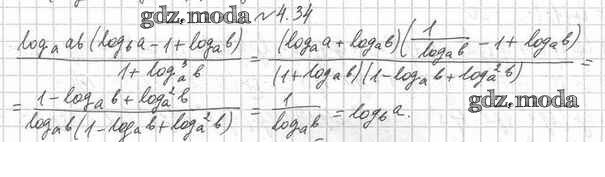 gdz.moda №4.34
log_a ab (log_b a - 1 + log_a b) / (1 + log_a^3 b) = (log_a a + log_a b)(1/log_a b - 1 + log_a b) / ((1 + log_a b)(1 - log_a b + log_a^2 b)) =
= (1 - log_a b + log_a^2 b) / (log_a b (1 - log_a b + log_a^2 b)) = 1/log_a b = log_b a.
gdz.moda